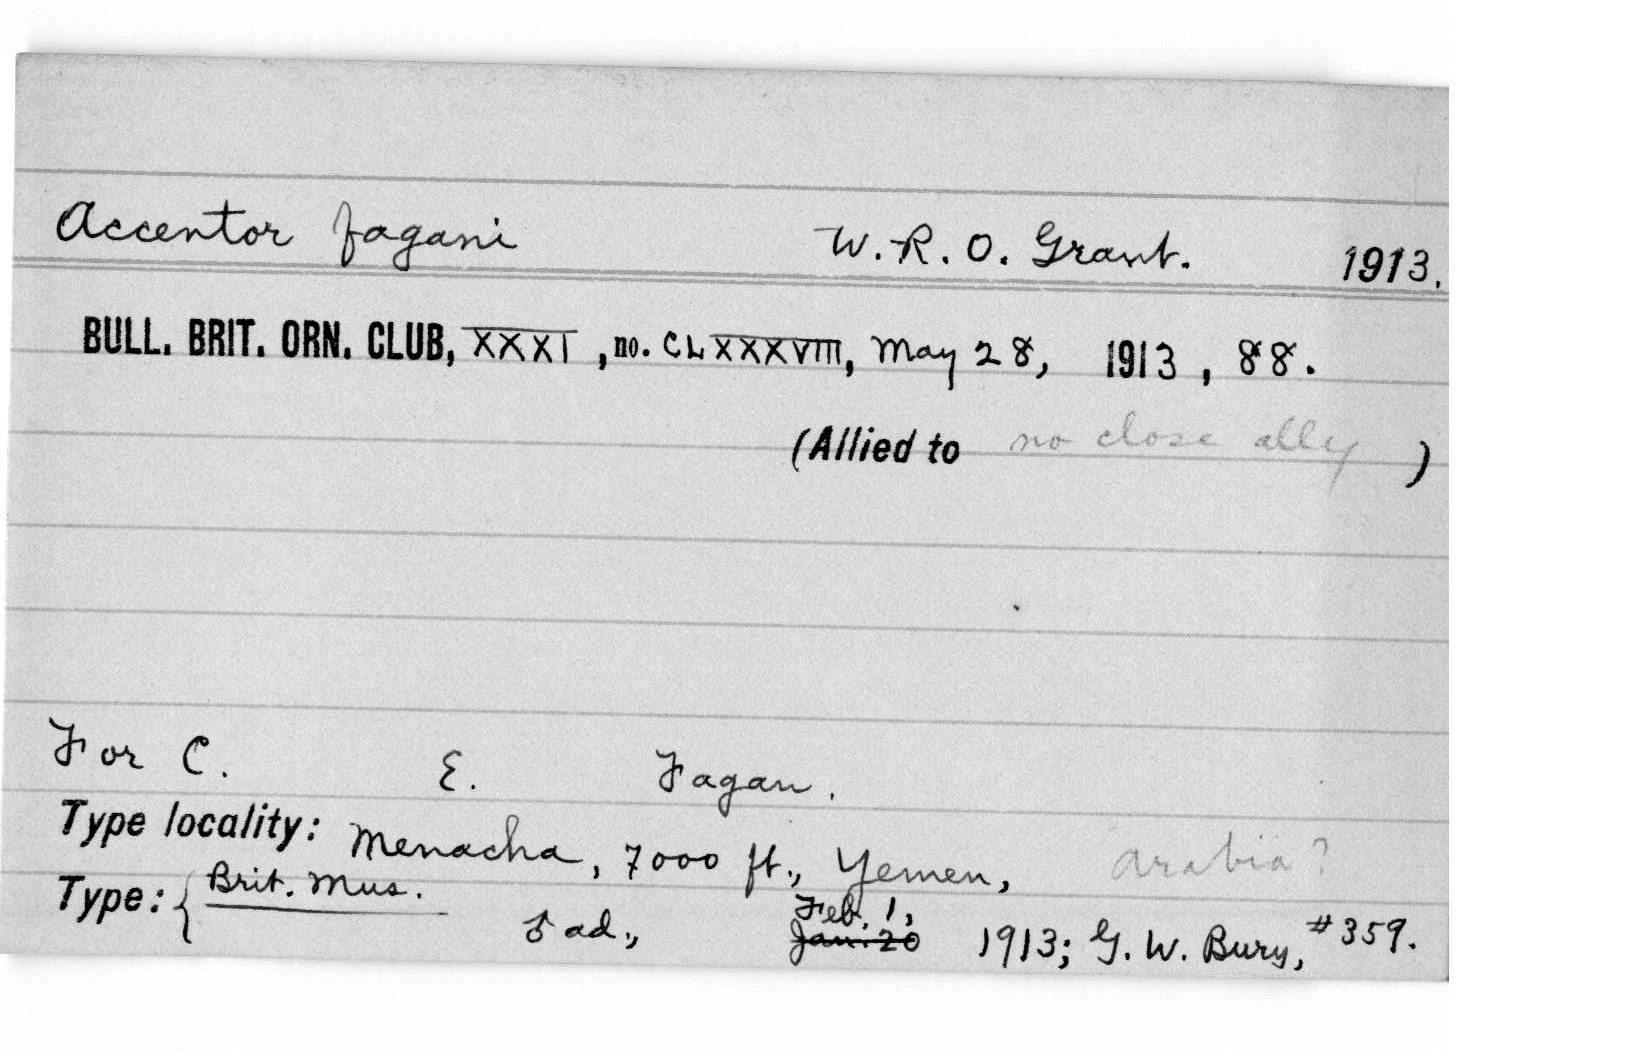 Accentor fagani W. R. O. Grant. 1913.
BULL. BRIT. ORN. CLUB, XXXI, no. CLXXXVIII, May 28, 1913, 88.
(Allied to no close ally)
For C. E. Fagan.
Type locality: Menacha, 7000 ft., Yemen, Arabia?
Type: { Brit. Mus.
Feb. 1,
♂ ad., Jan. 20 1913; G. W. Bury, #359.